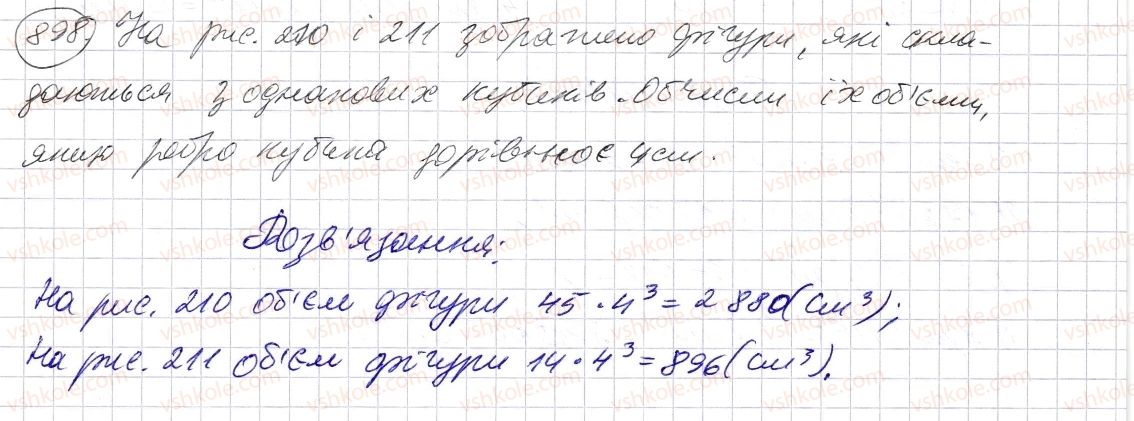 898) На рис. 210 і 211 зображено фігури, які скла-
даються з однакових кубиків. Обчисли їх об'єми,
якщо ребро кубика дорівнює 4см.
Розв'язання:
На рис. 210 об'єм фігури 45 · 4³ = 2 880 (см³);
На рис. 211 об'єм фігури 14 · 4³ = 896 (см³).